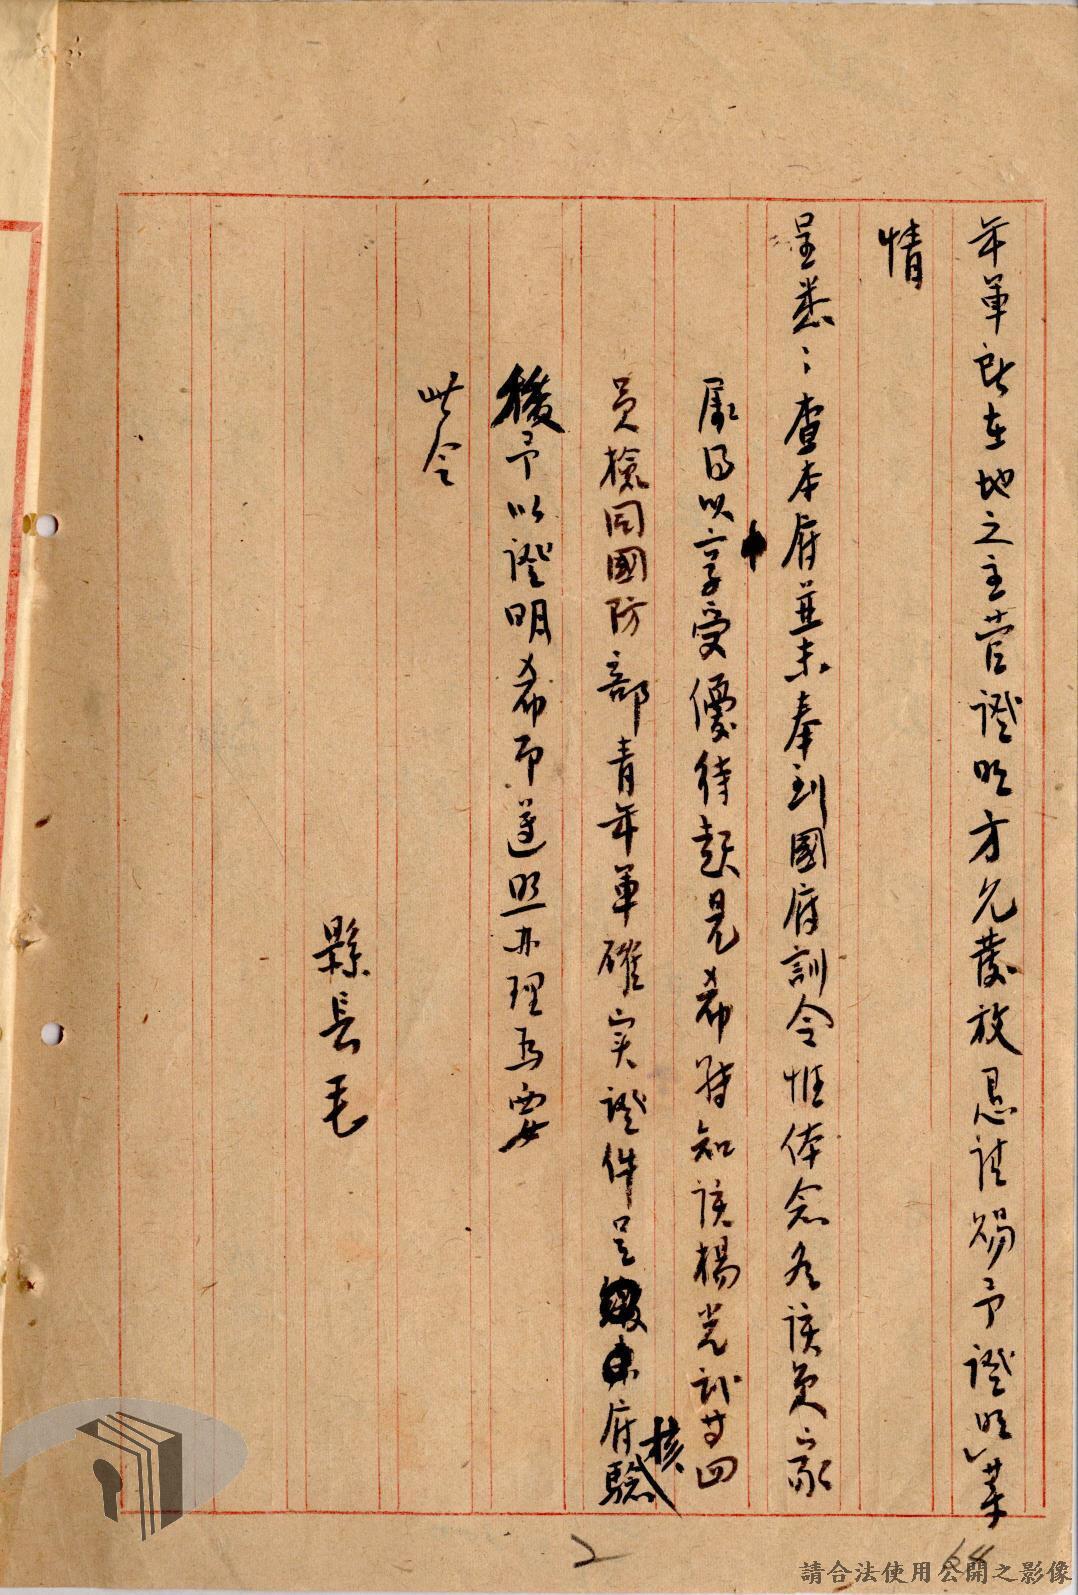 年軍駐在地之主管證明方允發放恳請賜予證明」等
情
呈悉:查本府並未奉到國府訓令惟体念各該員家
屬得以享受優待起見希特知該楊光試廿四
員檢同國防部青年軍確实證件呈本府驗核
後予以證明希即遵照办理為要
此令
縣長毛
2
68
請合法使用公開之影像